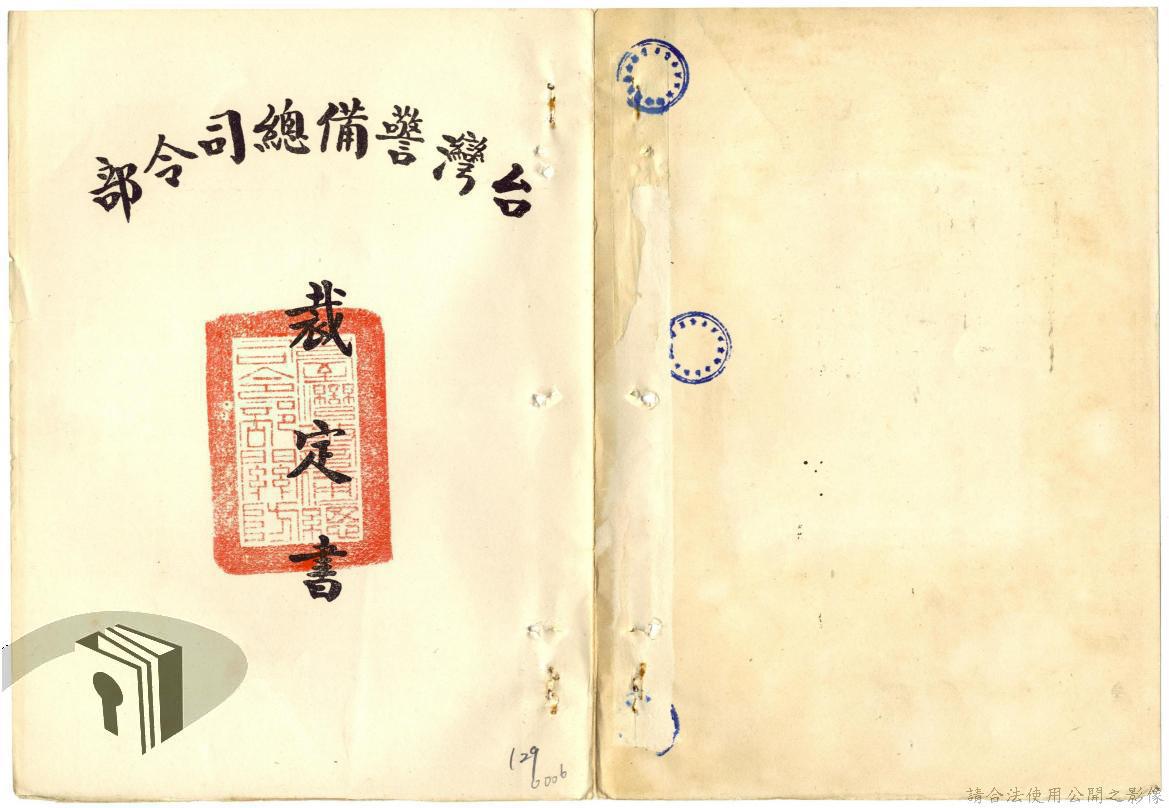 台灣警備總司令部
裁定書
129
6006
請合法使用公開之影像